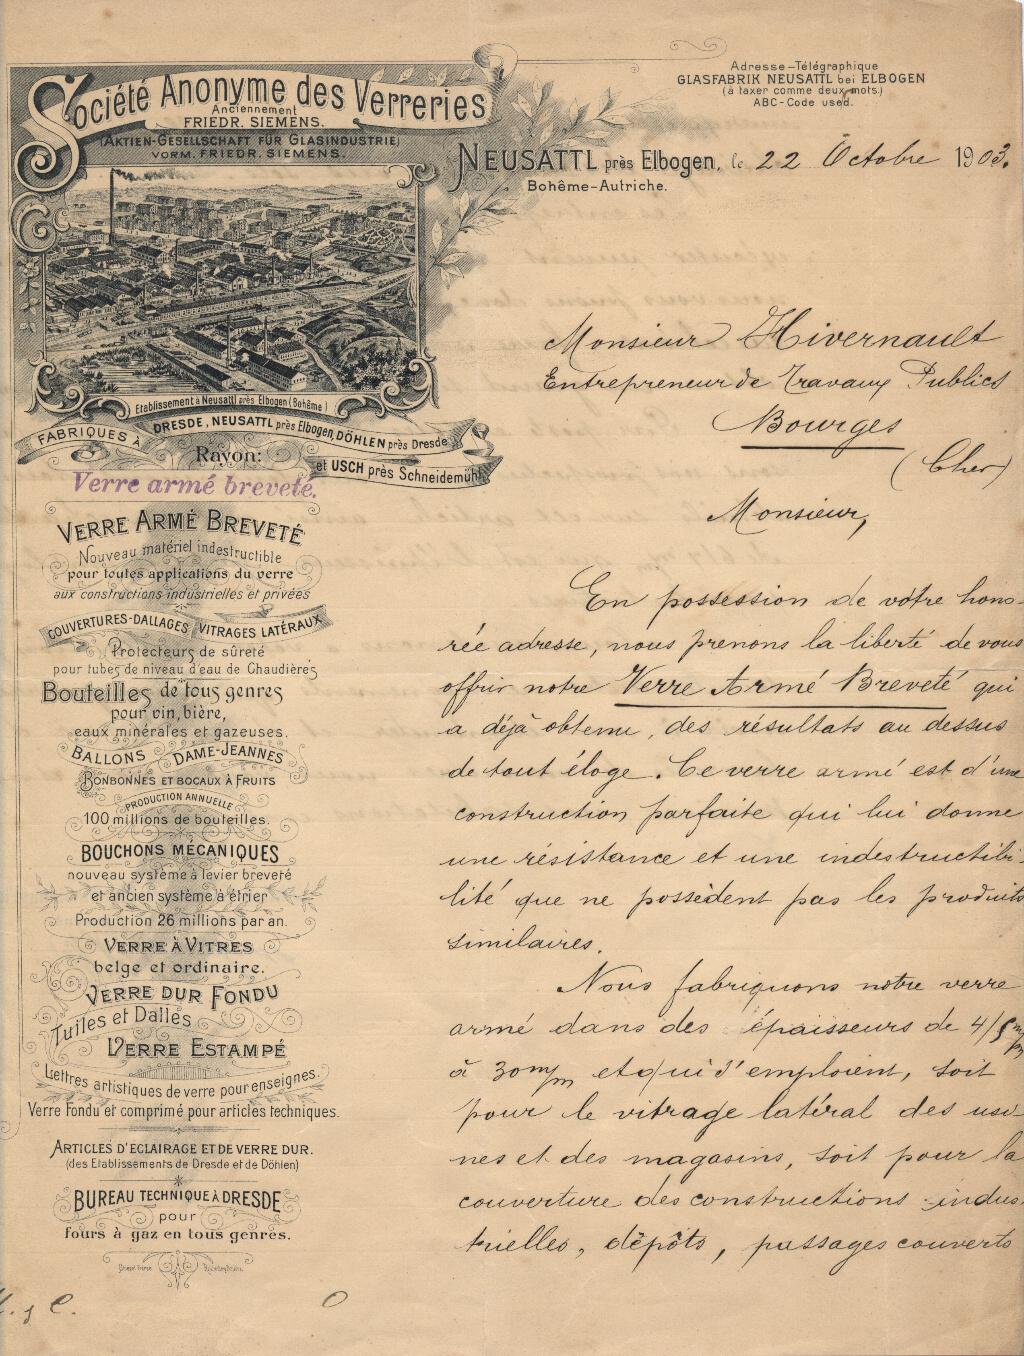 Société Anonyme des Verreries
Anciennement
FRIEDR. SIEMENS.
(AKTIEN-GESELLSCHAFT FÜR GLASINDUSTRIE)
VORM. FRIEDR. SIEMENS.
Adresse-Télégraphique
GLASFABRIK NEUSATTL bei ELBOGEN
(à taxer comme deux mots.)
ABC-Code used.
NEUSATTL près Elbogen, le 22 Octobre 1903.
Bohême-Autriche.
Etablissement à Neusattl près Elbogen (Bohême)
FABRIQUES À DRESDE, NEUSATTL près Elbogen, DÖHLEN près Dresde
et USCH près Schneidemühl.
Rayon:
Verre armé breveté.
VERRE ARMÉ BREVETÉ
Nouveau matériel indestructible
pour toutes applications du verre
aux constructions industrielles et privées
COUVERTURES-DALLAGES VITRAGES LATÉRAUX
Protecteurs de sûreté
pour tubes de niveau d'eau de Chaudières
Bouteilles de tous genres
pour vin, bière,
eaux minérales et gazeuses.
BALLONS DAME-JEANNES
BONBONNES ET BOCAUX À FRUITS
PRODUCTION ANNUELLE
100 millions de bouteilles.
BOUCHONS MÉCANIQUES
nouveau système à levier breveté
et ancien système à étrier
Production 26 millions par an.
VERRE À VITRES
belge et ordinaire.
VERRE DUR FONDU
Tuiles et Dalles
VERRE ESTAMPÉ
Lettres artistiques de verre pour enseignes.
Verre Fondu et comprimé pour articles techniques.
ARTICLES D'ECLAIRAGE ET DE VERRE DUR.
(des Etablissements de Dresde et de Döhlen)
BUREAU TECHNIQUE À DRESDE
pour
fours à gaz en tous genres.
Monsieur Hivernault
Entrepreneur de Travaux Publics
Bourges
(Cher)
Monsieur,
En possession de votre hono-
rée adresse, nous prenons la liberté de vous
offrir notre Verre Armé Breveté qui
a déjà obtenu, des résultats au dessus
de tout éloge. Ce verre armé est d'une
construction parfaite qui lui donne
une résistance et une indestructibi-
lité que ne possèdent pas les produits
similaires.
Nous fabriquons notre verre
armé dans des épaisseurs de 4/5 m/m
à 30 m/m et qui s'emploient, soit
pour le vitrage latéral des usi-
nes et des magasins, soit pour la
couverture des constructions indus-
trielles, dépôts, passages couverts